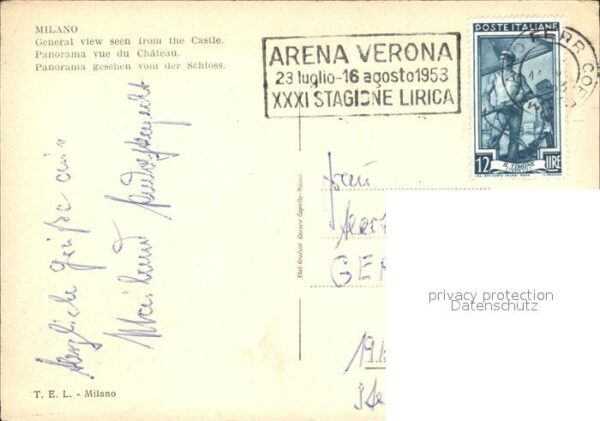 MILANO
General view seen from the Castle.
Panorama vue du Château.
Panorama gesehen vom der Schloss.
ARENA VERONA
23 luglio-16 agosto 1953
XXXI STAGIONE LIRICA
POSTE ITALIANE
12 LIRE
Herzliche Grüße aus
Mailand
Frau
GER
privacy protection
Datenschutz
T. E. L. - Milano